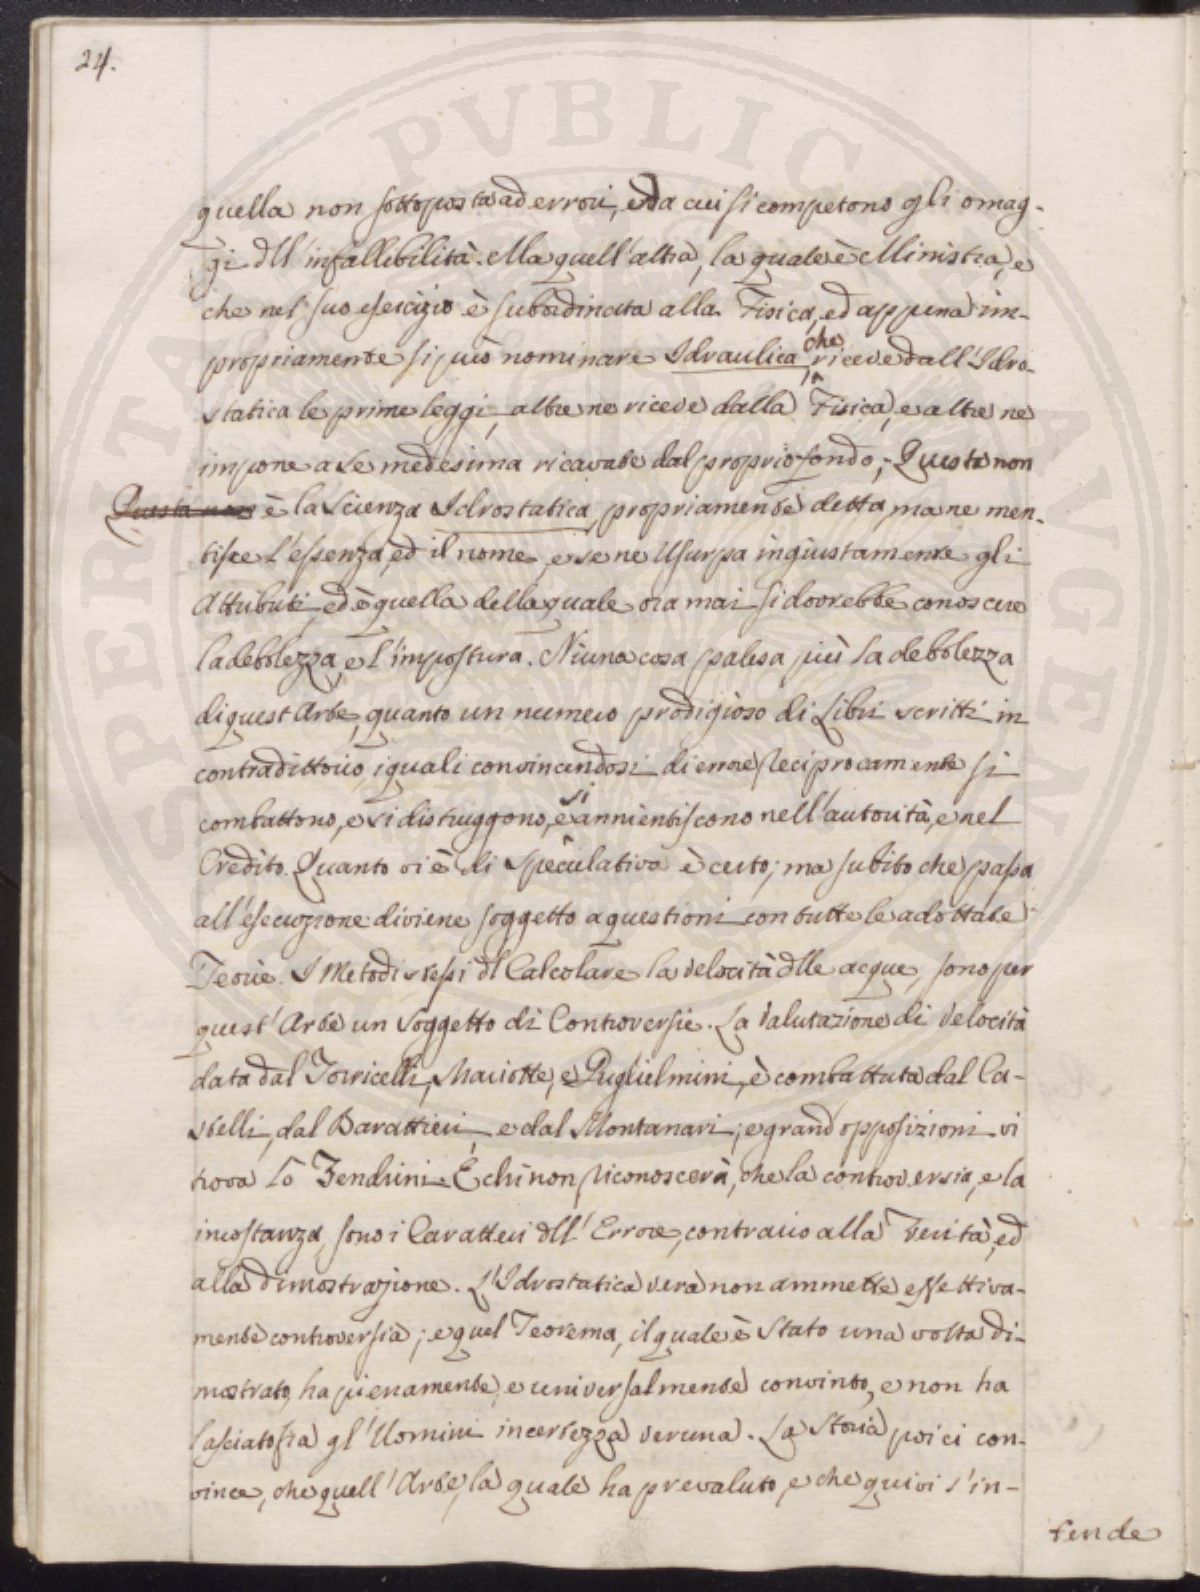 24.
quella non sottoposta ad errori, ed a cui si competono gli omag-
gi dll'infallibilità. Ma quell'altra, la quale è Ministra, e
che nel suo esercizio è subordinata alla Fisica, ed appena im-
propriamente si può nominare Idraulica, che riceve dall'Idro-
statica le prime leggi, altre ne riceve dalla Fisica, e altre ne
impone a se medesima ricavate dal proprio fondo; Questa non
Questa non è la Scienza Idrostatica propriamente detta, ma ne men-
tisce l'essenza, ed il nome, e se ne Usurpa ingiustamente gli
Attributi, ed è quella della quale ora mai si dovrebbe conoscere
la debolezza, e l'impostura. Niuna cosa palesa più la debolezza
di quest'Arte, quanto un numero prodigioso di Libri scritti in
contradittorio, i quali convincendosi di errore reciprocamente si
combattono, e si distruggono, e si annientiscono nell'autorità, e nel
Credito. Quanto vi è di Speculativo è certo; ma subito che passa
all'esecuzione diviene soggetto a questioni con tutte le adottate
Teorie. I Metodi stessi di Calcolare la velocità dlle acque, sono per
quest'Arte un soggetto di Controversie. La Valutazione di Velocità
data dal Torricelli, Mariotte, e Guglielmini, è combattuta dal Ca-
stelli, dal Barattieri, e dal Montanari; e grand opposizioni vi
trova lo Zendrini. E chi non riconoscerà, che la controversia, e la
incostanza, sono i Caratteri dll'Errore, contrario alla Verità, ed
alla dimostrazione. L'Idrostatica vera non ammette effettiva-
mente controversia; e quel Teorema, il quale è Stato una volta di-
mostrato, ha pienamente, e universalmente convinto, e non ha
lasciato fra gl'Uomini incertezza veruna. La Storia poi ci con-
vince, che quell'Arte, la quale ha prevaluto, e che quivi s'in-
tende